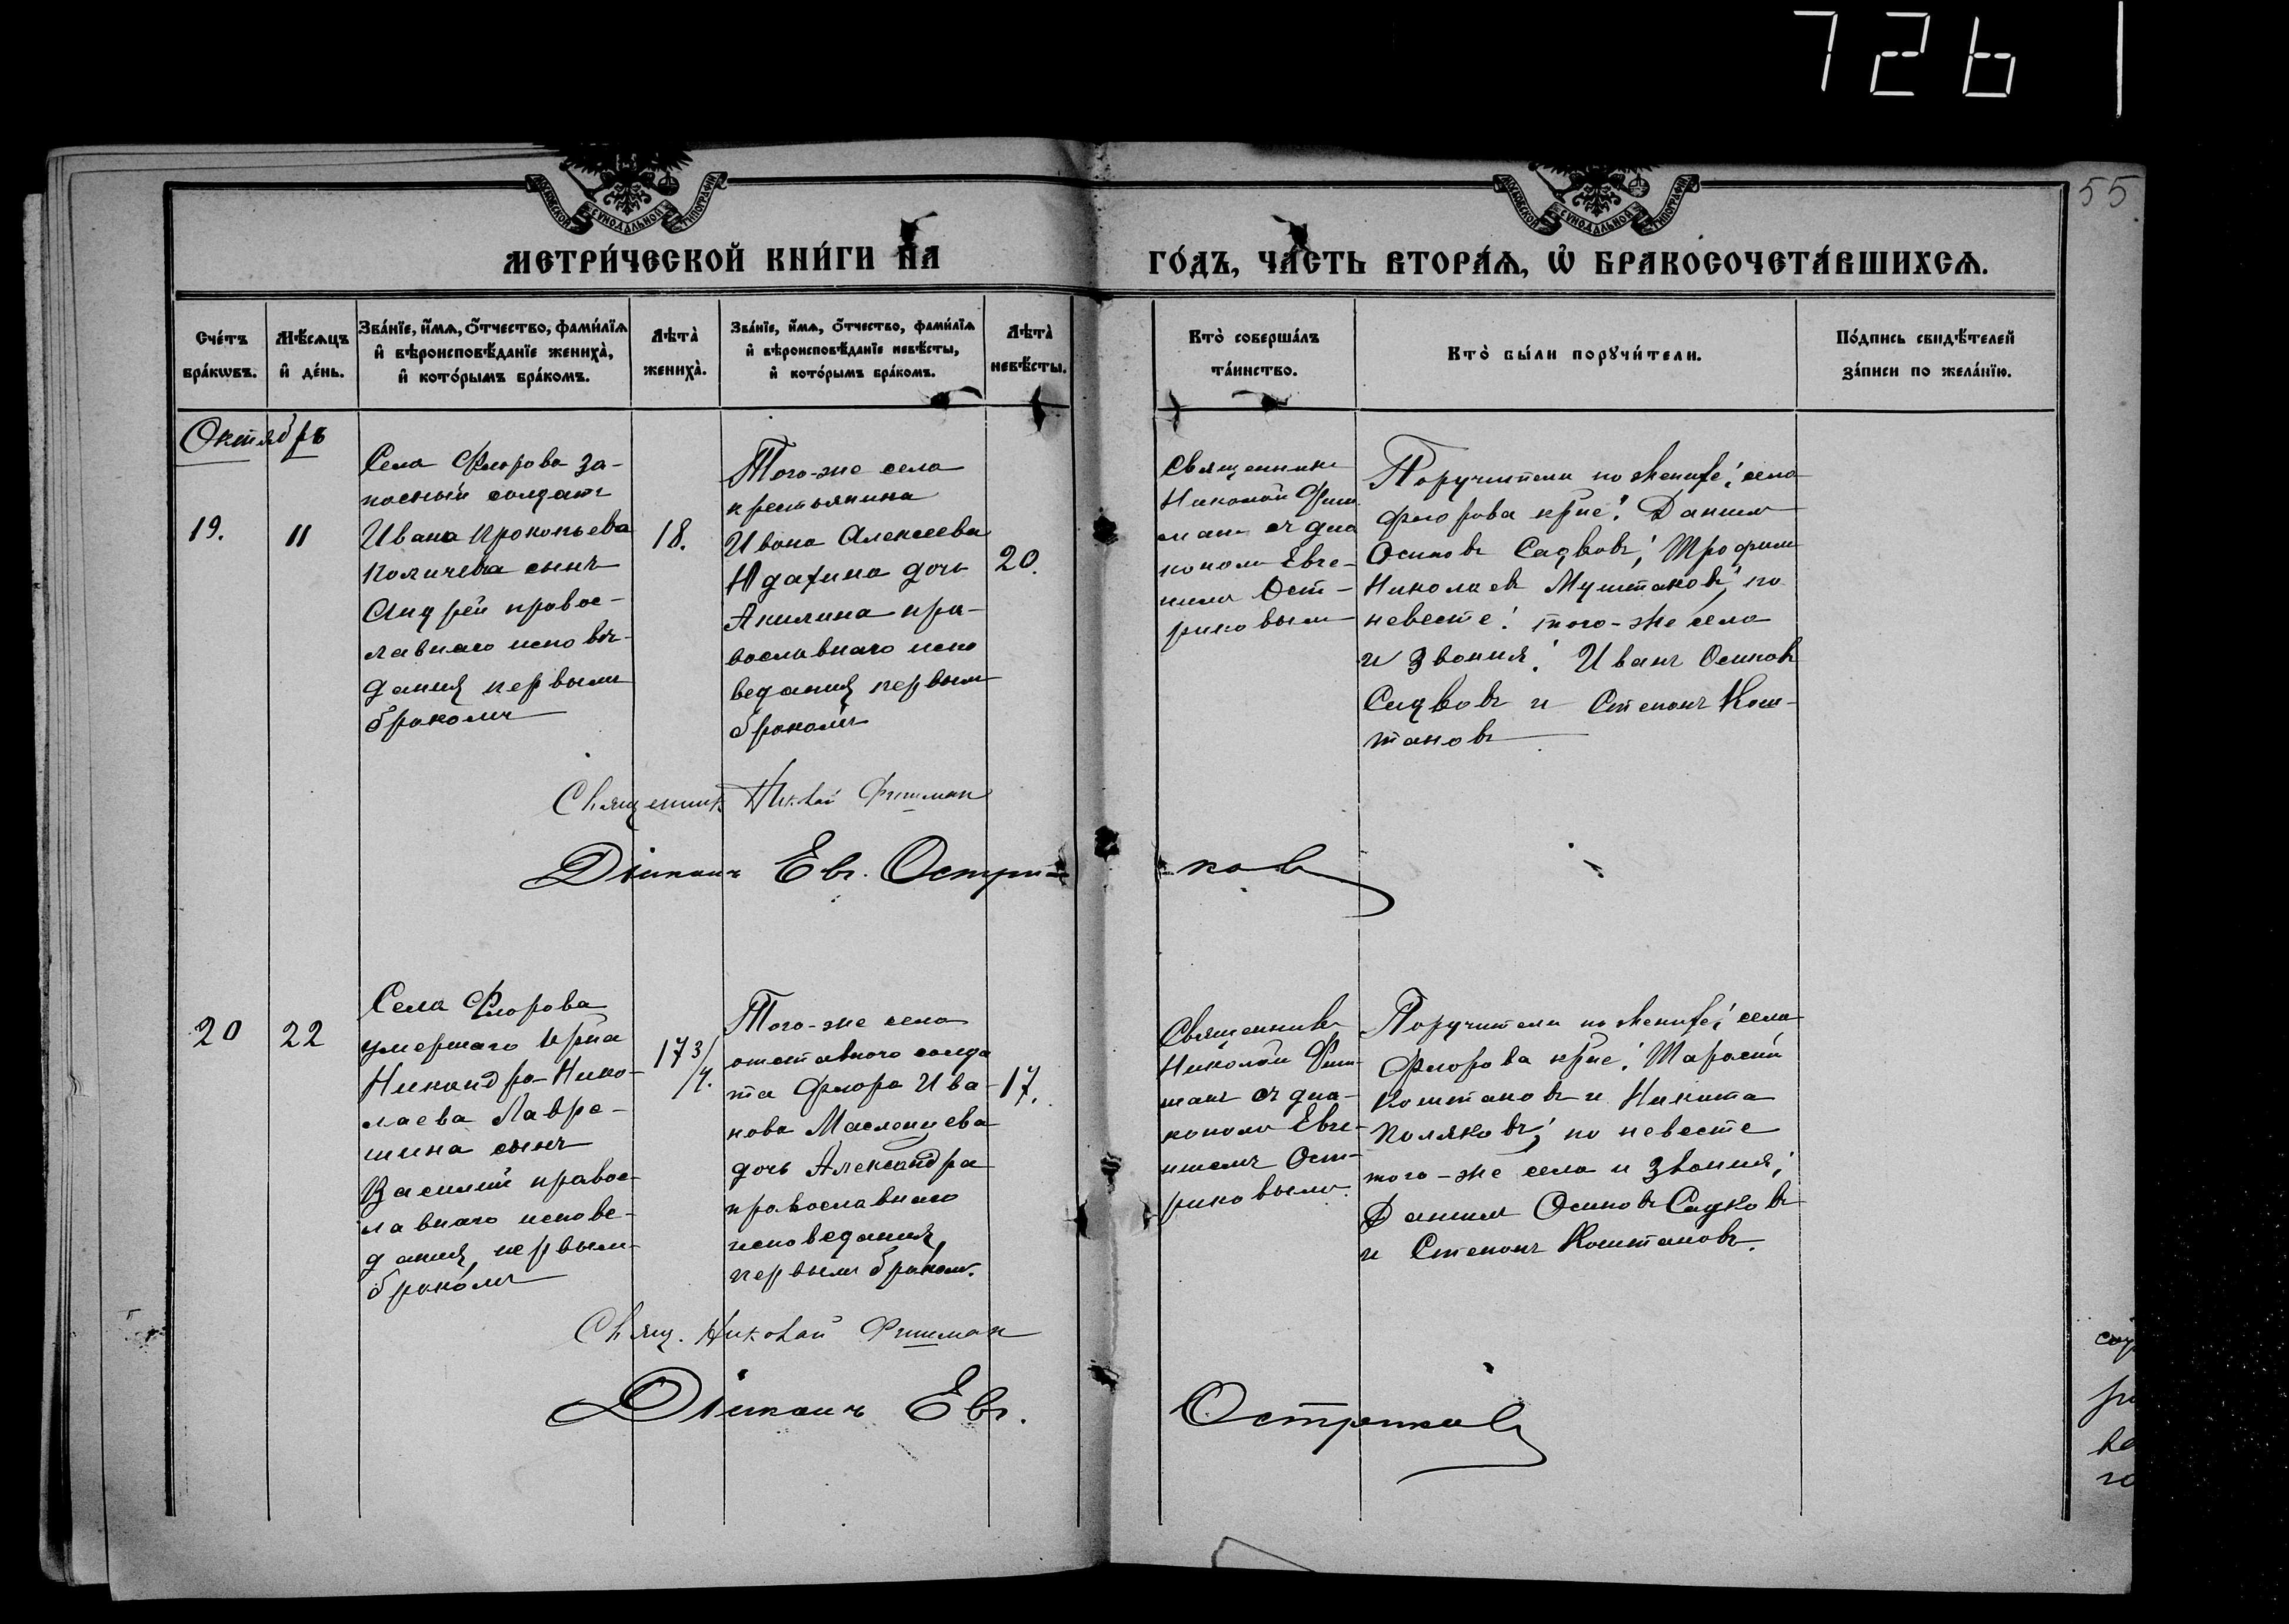 726
55
МОСКОВСКОЙ СУНОДАЛЬНОЙ ТИПОГРАФІИ
МОСКОВСКОЙ СУНОДАЛЬНОЙ ТИПОГРАФІИ
МЕТРИ́ЧЕСКОЙ КНИ́ГИ НА
ГО́ДЪ, ЧА́СТЬ ВТОРА́Ѧ, Ѽ БРАКОСОЧЕТА́ВШИХСѦ.
Сче́тъ
бра́кѡвъ.
Мѣ́сѧцъ
и҆ де́нь.
Зва́нїе, и҆́мѧ, ѻ҆́тчество, фами́лїѧ
и҆ вѣроисповѣ́данїе жениха̀,
и҆ кото́рымъ бра́комъ.
Лѣта̀
жениха̀.
Зва́нїе, и҆́мѧ, ѻ҆́тчество, фами́лїѧ
и҆ вѣроисповѣ́данїе невѣ́сты,
и҆ кото́рымъ бра́комъ.
Лѣта̀
невѣ́сты.
Кто̀ соверша́лъ
та́инство.
Кто̀ бы́ли порꙋчи́тели.
По́дпись свидѣ́телей
за́писи по жела́нїю.
Октябрь
19.
11
Села Флорова за-
посный солдатъ
Ивана Прокопьева
Каличева сынъ
Андрей правос-
лавнаго исповѣ-
данія первымъ
бракомъ
18.
Того-же села
крестьянина
Ивана Алексеева
Юдахина дочь
Акилина пра-
вославнаго испо
веданія первым
бракомъ
20.
Священникъ
Николай Фиш
манъ съ диа
кономъ Евге-
нимъ Ост-
риковым
Поручители по женихе: села
Флорова крне: Данилъ
Осиповъ Садковъ; Трофим
Николаев Муштаковъ; по
невесте: того-же села
и звония: Иванъ Осиповъ
Садковъ и Степанъ Кош-
тановъ
Священникъ Николай Фишман
Діаконъ Евг. Остри-
ков
20
22
Села Флорова
умершаго крна
Никандра Нико-
лаева Лавре-
шина сынъ
Василий правос-
лавнаго испове-
дания, первым
бракомъ
17 3/
/4.
Того-же села
отставного солда
та Флора Ива-
нова Масленцева
дочь Александра
православнаго
исповедания,
первымъ браком.
17.
Священникъ
Николай Фиш-
манъ съ диа-
кономъ Евге-
ниемъ Ост-
риковымъ.
Поручители по женихе: села
Флорова крне: Тарасий
Коштановъ и Никита
Поляковъ; по невесте
того-же села и звония:
Данилъ Осиповъ Садковъ
и Степанъ Коштановъ.
Свящ. Николай Фишман
Діаконъ Евг.
Остриков